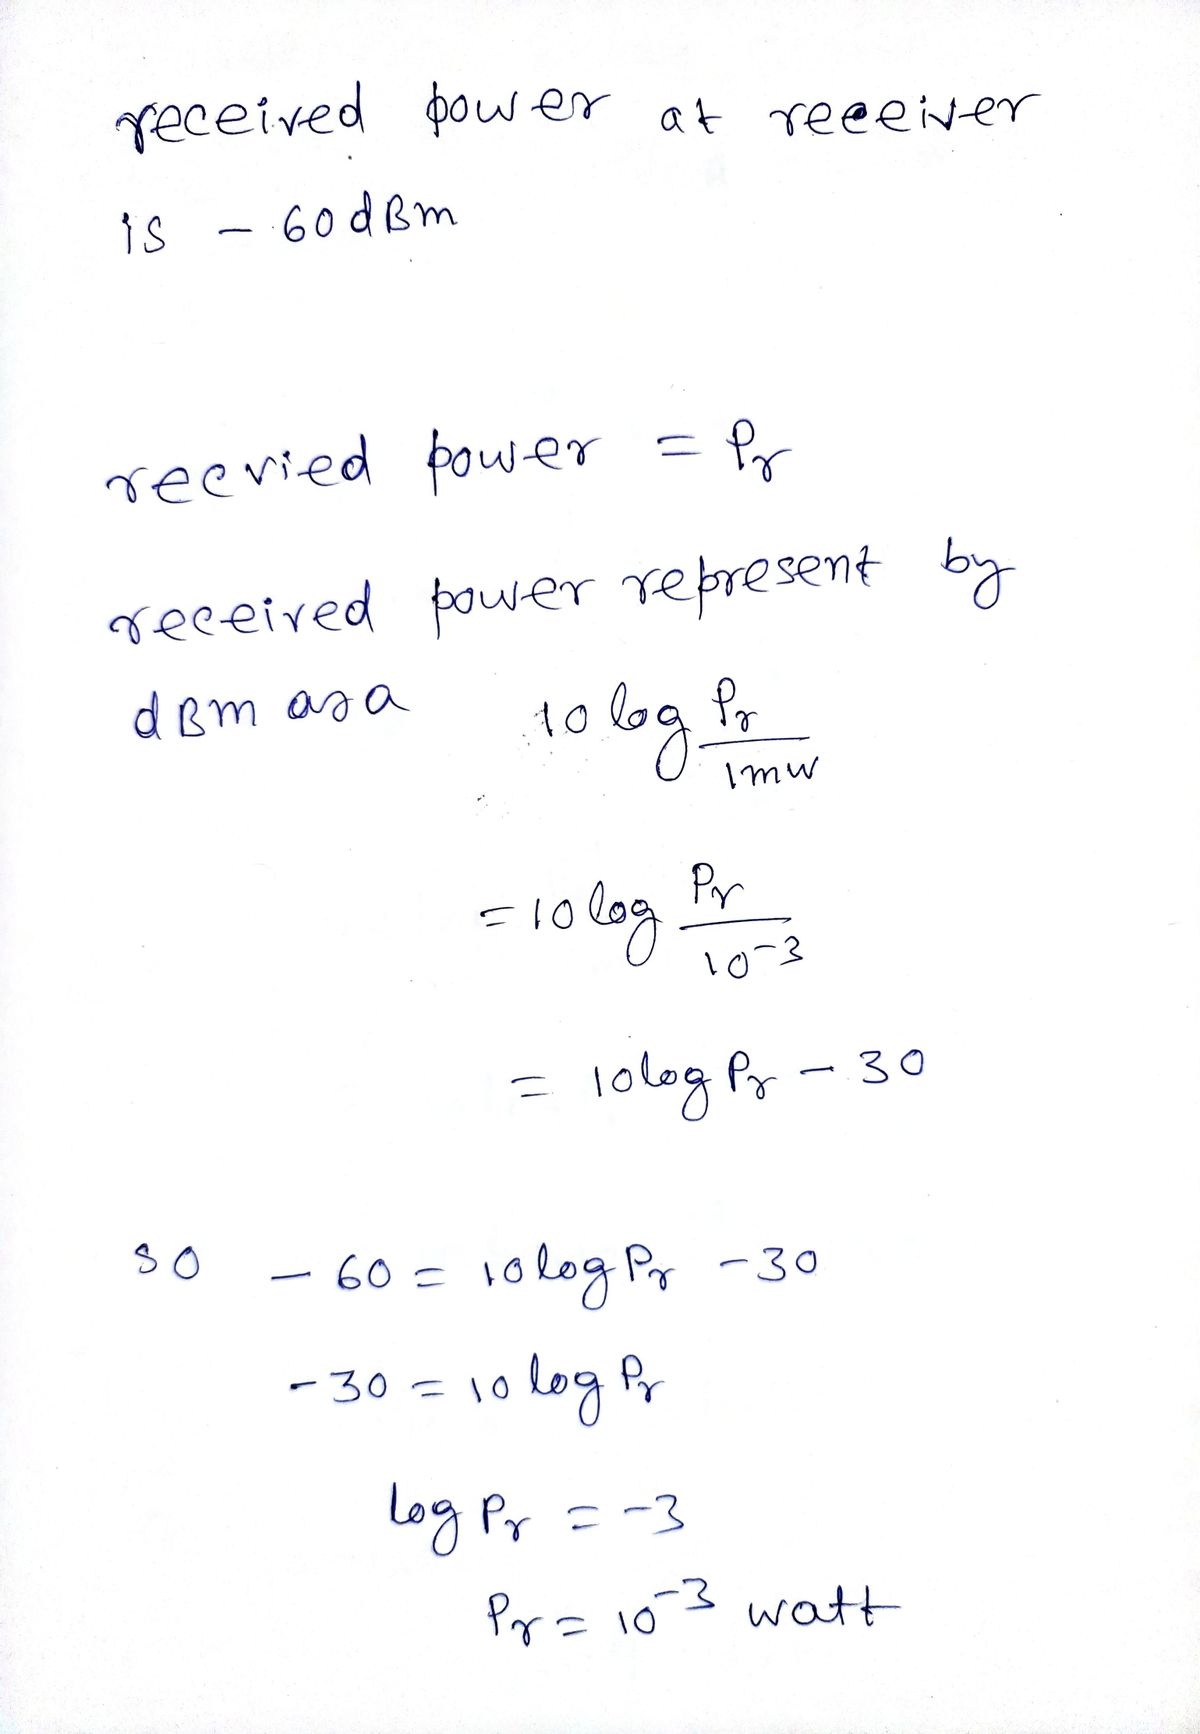 received power at receiver
is - 60 dBm
recvied power = Pr
received power represent by
dBm as a 10 log Pr/1mw
= 10 log Pr/10^-3
= 10 log Pr - 30
so - 60 = 10 log Pr - 30
- 30 = 10 log Pr
log Pr = -3
Pr = 10^-3 watt